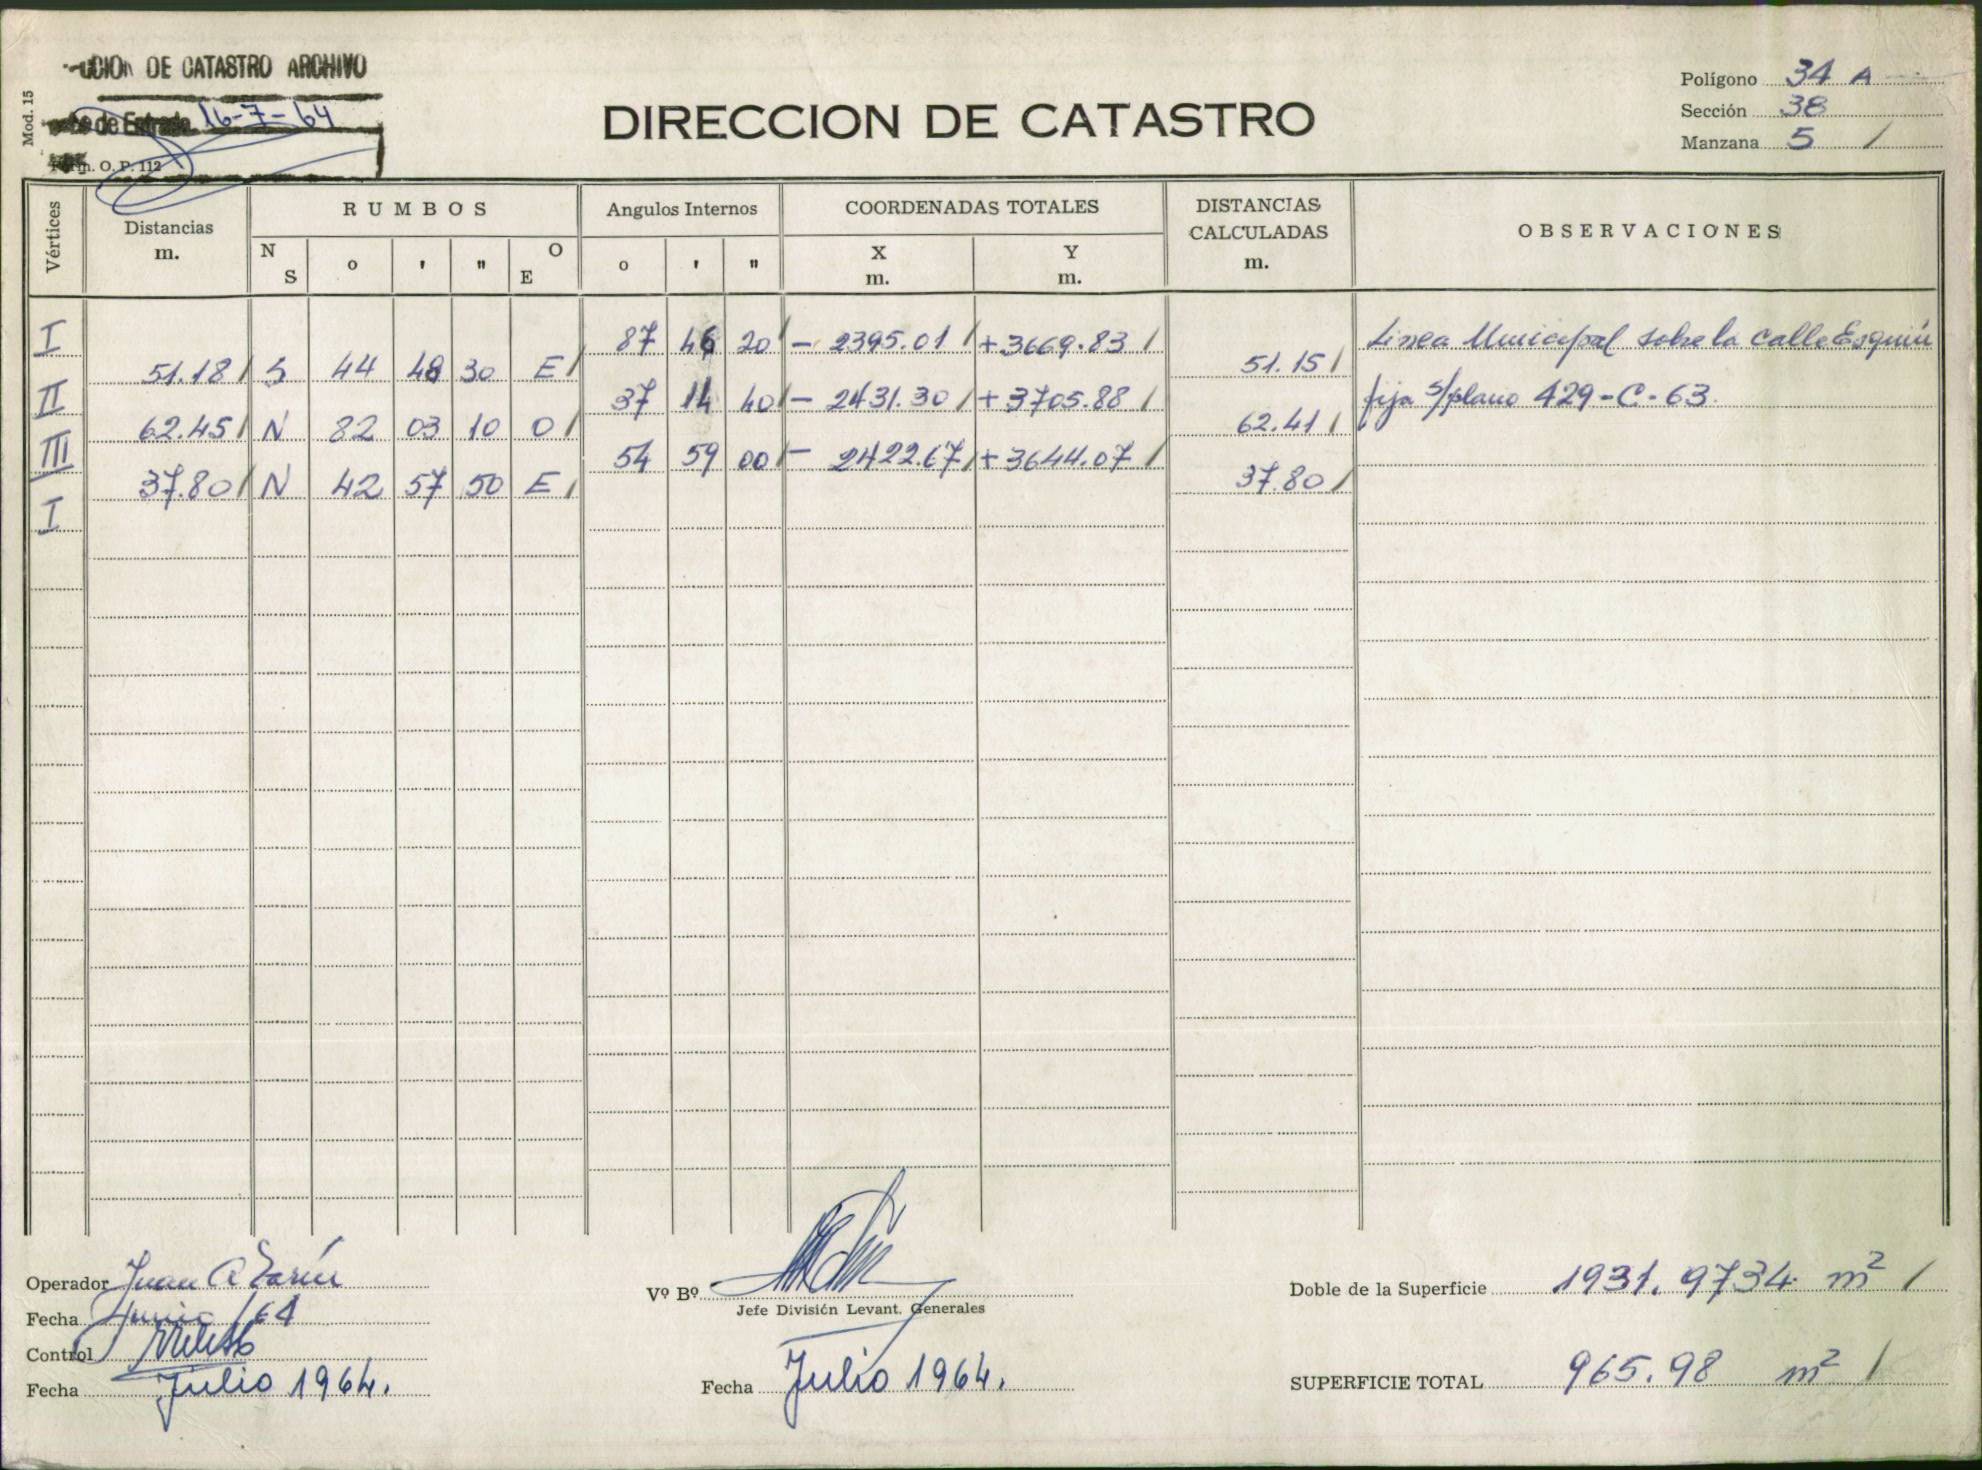 DE CATASTRO ARCHIVO
Mod. 15
de Entrada 16-7-64
O. P. 112
DIRECCION DE CATASTRO
Polígono 34 A
Sección 38
Manzana 5 /
Vértices
Distancias
m.
RUMBOS
N S ° ' " O E
Angulos Internos
° ' "
COORDENADAS TOTALES
X
m.
Y
m.
DISTANCIAS
CALCULADAS
m.
OBSERVACIONES
I 87 46 20 / - 2395.01 / + 3669.83 / Linea Municipal sobre la calle Esquiú
51.18 / S 44 48 30 E / 51.15 /
II 37 14 40 / - 2431.30 / + 3705.88 / fija s/plano 429-C-63.
62.45 / N 82 03 10 O / 62.41 /
III 54 59 00 / - 2422.67 / + 3644.07 /
37.80 / N 42 57 50 E / 37.80 /
I
Operador Juan A
Fecha Junio /64
Control
Fecha Julio 1964.
Vº Bº
Jefe División Levant. Generales
Fecha Julio 1964.
Doble de la Superficie 1931.9734 m² /
SUPERFICIE TOTAL 965.98 m² /